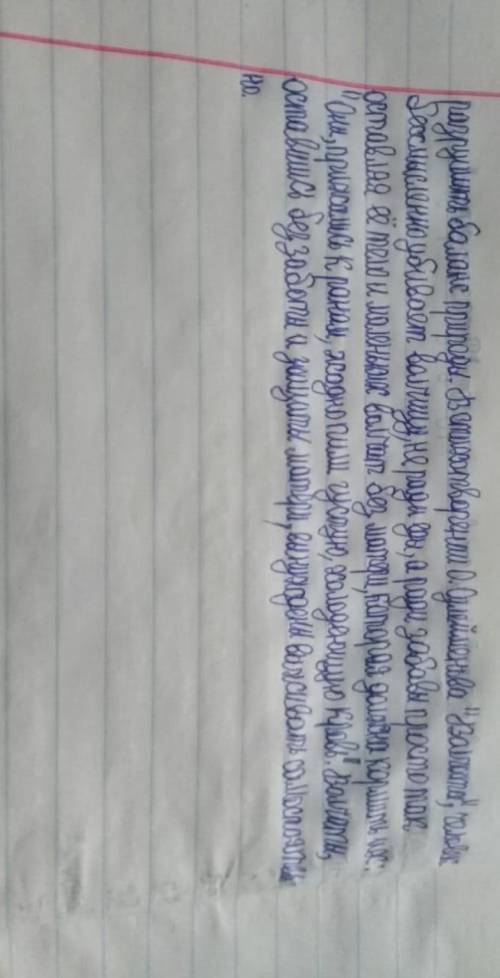 нарушить баланс природы. В стихотворении С. Куняшева "Волчата", человек
бессмысленно убивает волчицу не ради еды, а ради забавы просто так
оставляя её тело и маленьких волчат без матери, которая должна кормить их:
"Они, прижавшись к ранам, жадно пили густую, холодеющую кровь". Волчата,
оставшись без заботы и защиты матери, вынуждены выживать самостоятель-
но.